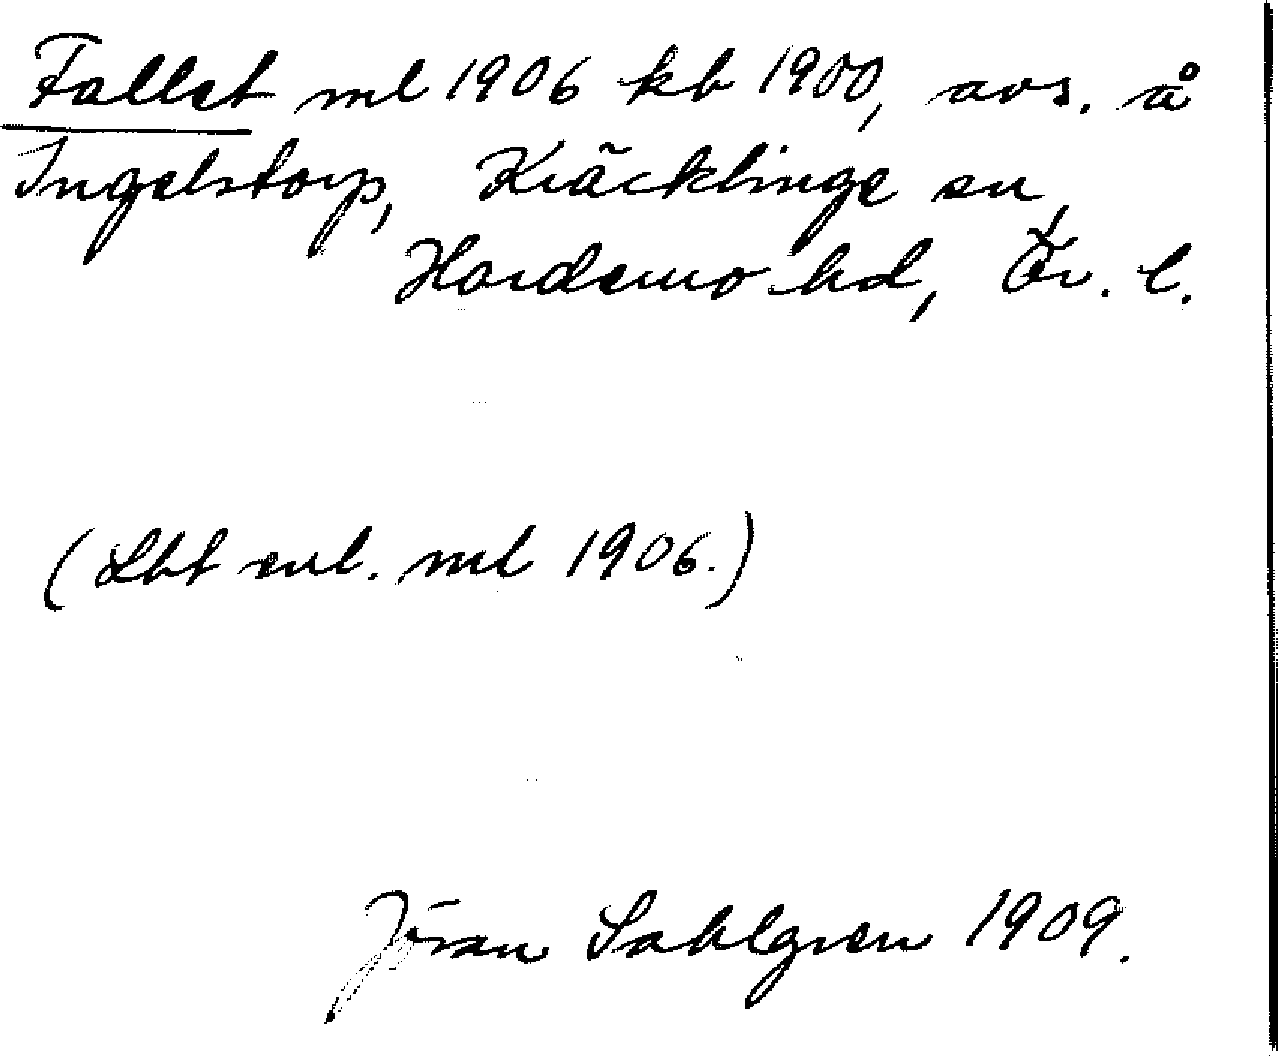 Fallet ml 1906 kb 1900, avs. å
Ingelstorp, Kräcklinge sn,
Hardemo hd, Ör. l.
(Lht enl. ml 1906.)
Jöran Sahlgren 1909.